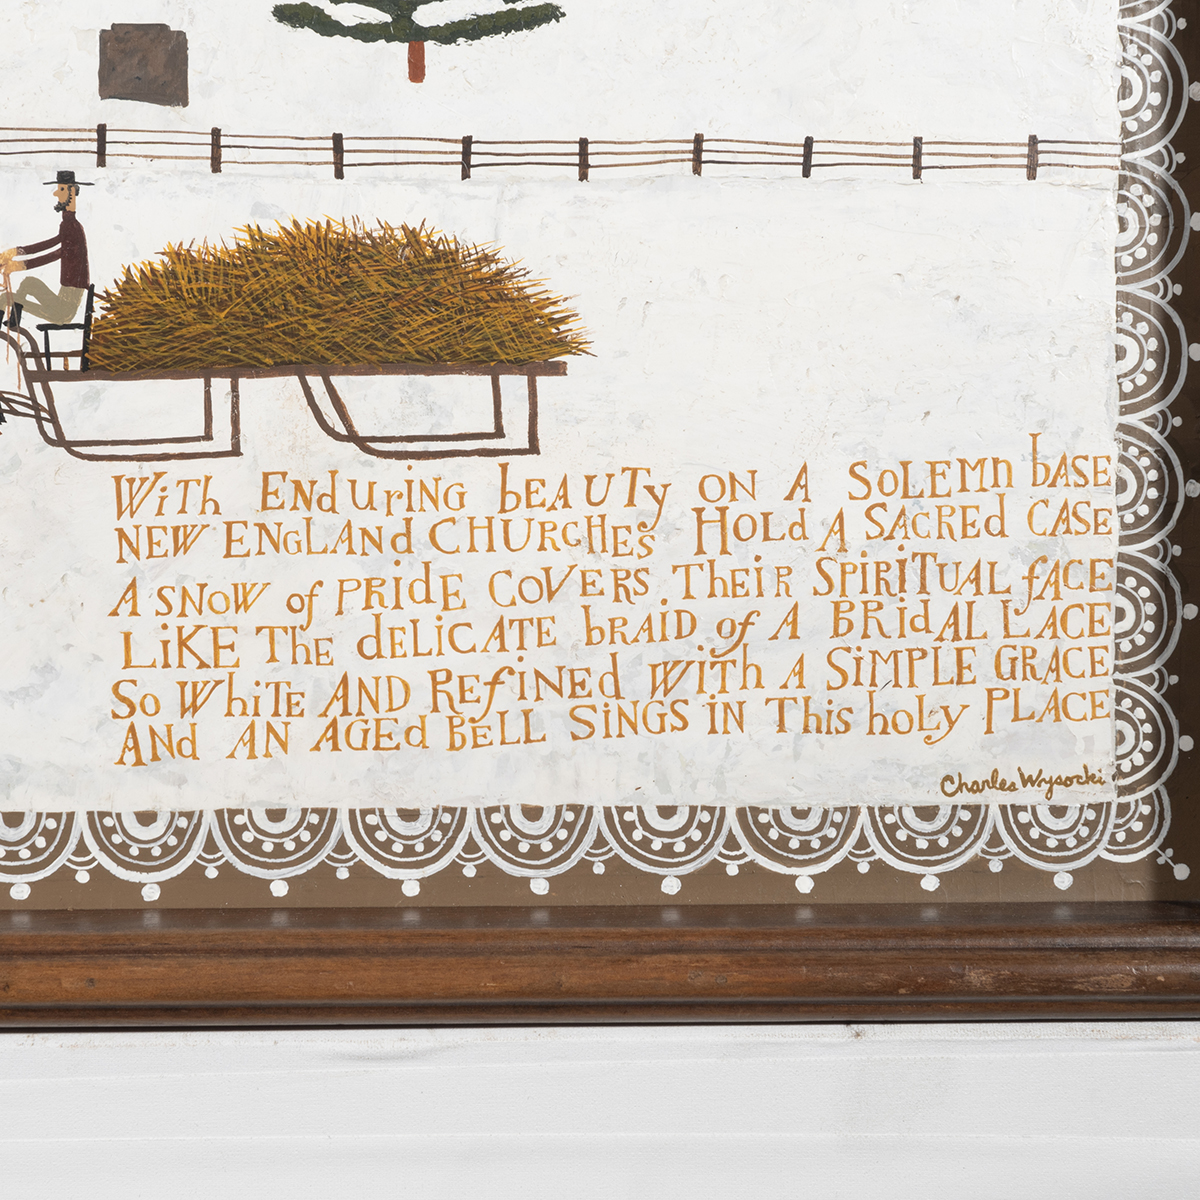 WiTh ENduriNG bEAUTy ON A SOLEMn bASE
NEW ENGLANd CHURCHES HOLd A SACREd CASE
A SNOW of PRIdE COVERS TheiR SPIRITUAL fACE
LiKE The dELiCATE bRAiD of A BRidAL LACE
So WhiTE AND REfiNEd wiTh A SiMPLE GRACE
ANd AN AGEd BELL SiNGS iN This hoLy PLACE
Charles Wysocki